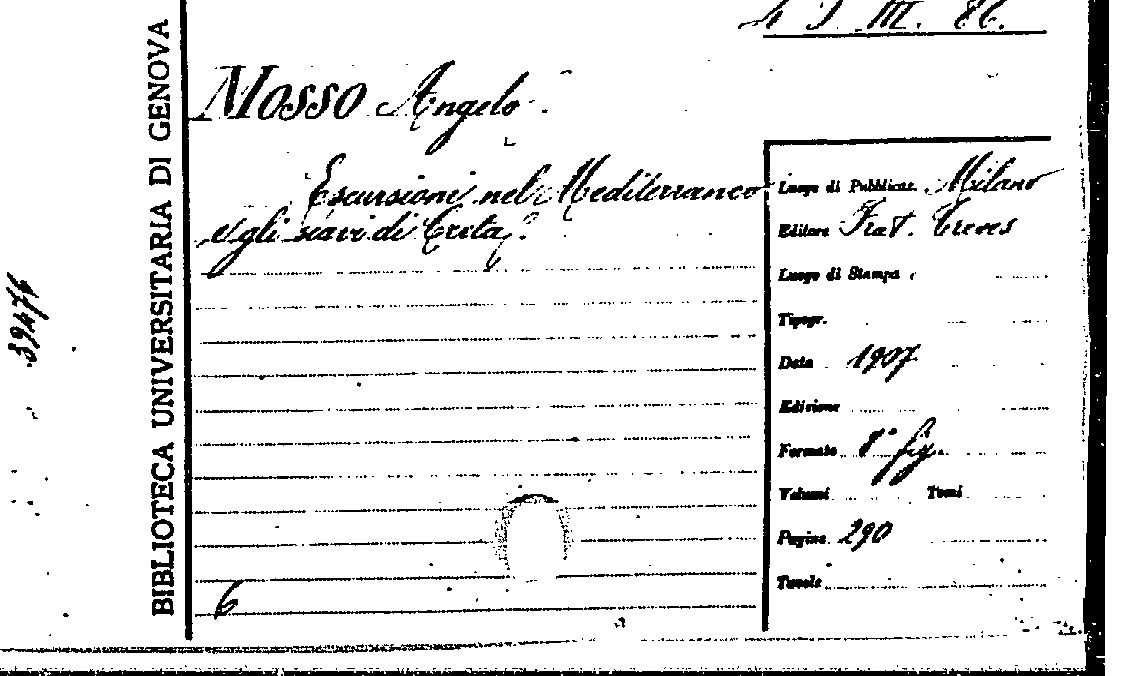 4 J. III. 86.
BIBLIOTECA UNIVERSITARIA DI GENOVA
39476
Mosso Angelo.
Escursioni nel Mediterraneo
e gli scavi di Creta.
Luogo di Pubblicaz. Milano
Editore Frat. Treves
Luogo di Stampa
Tipogr.
Data 1907
Edizione
Formato 8° fig.
Volumi Tomi
Pagine 290
Tavole
6